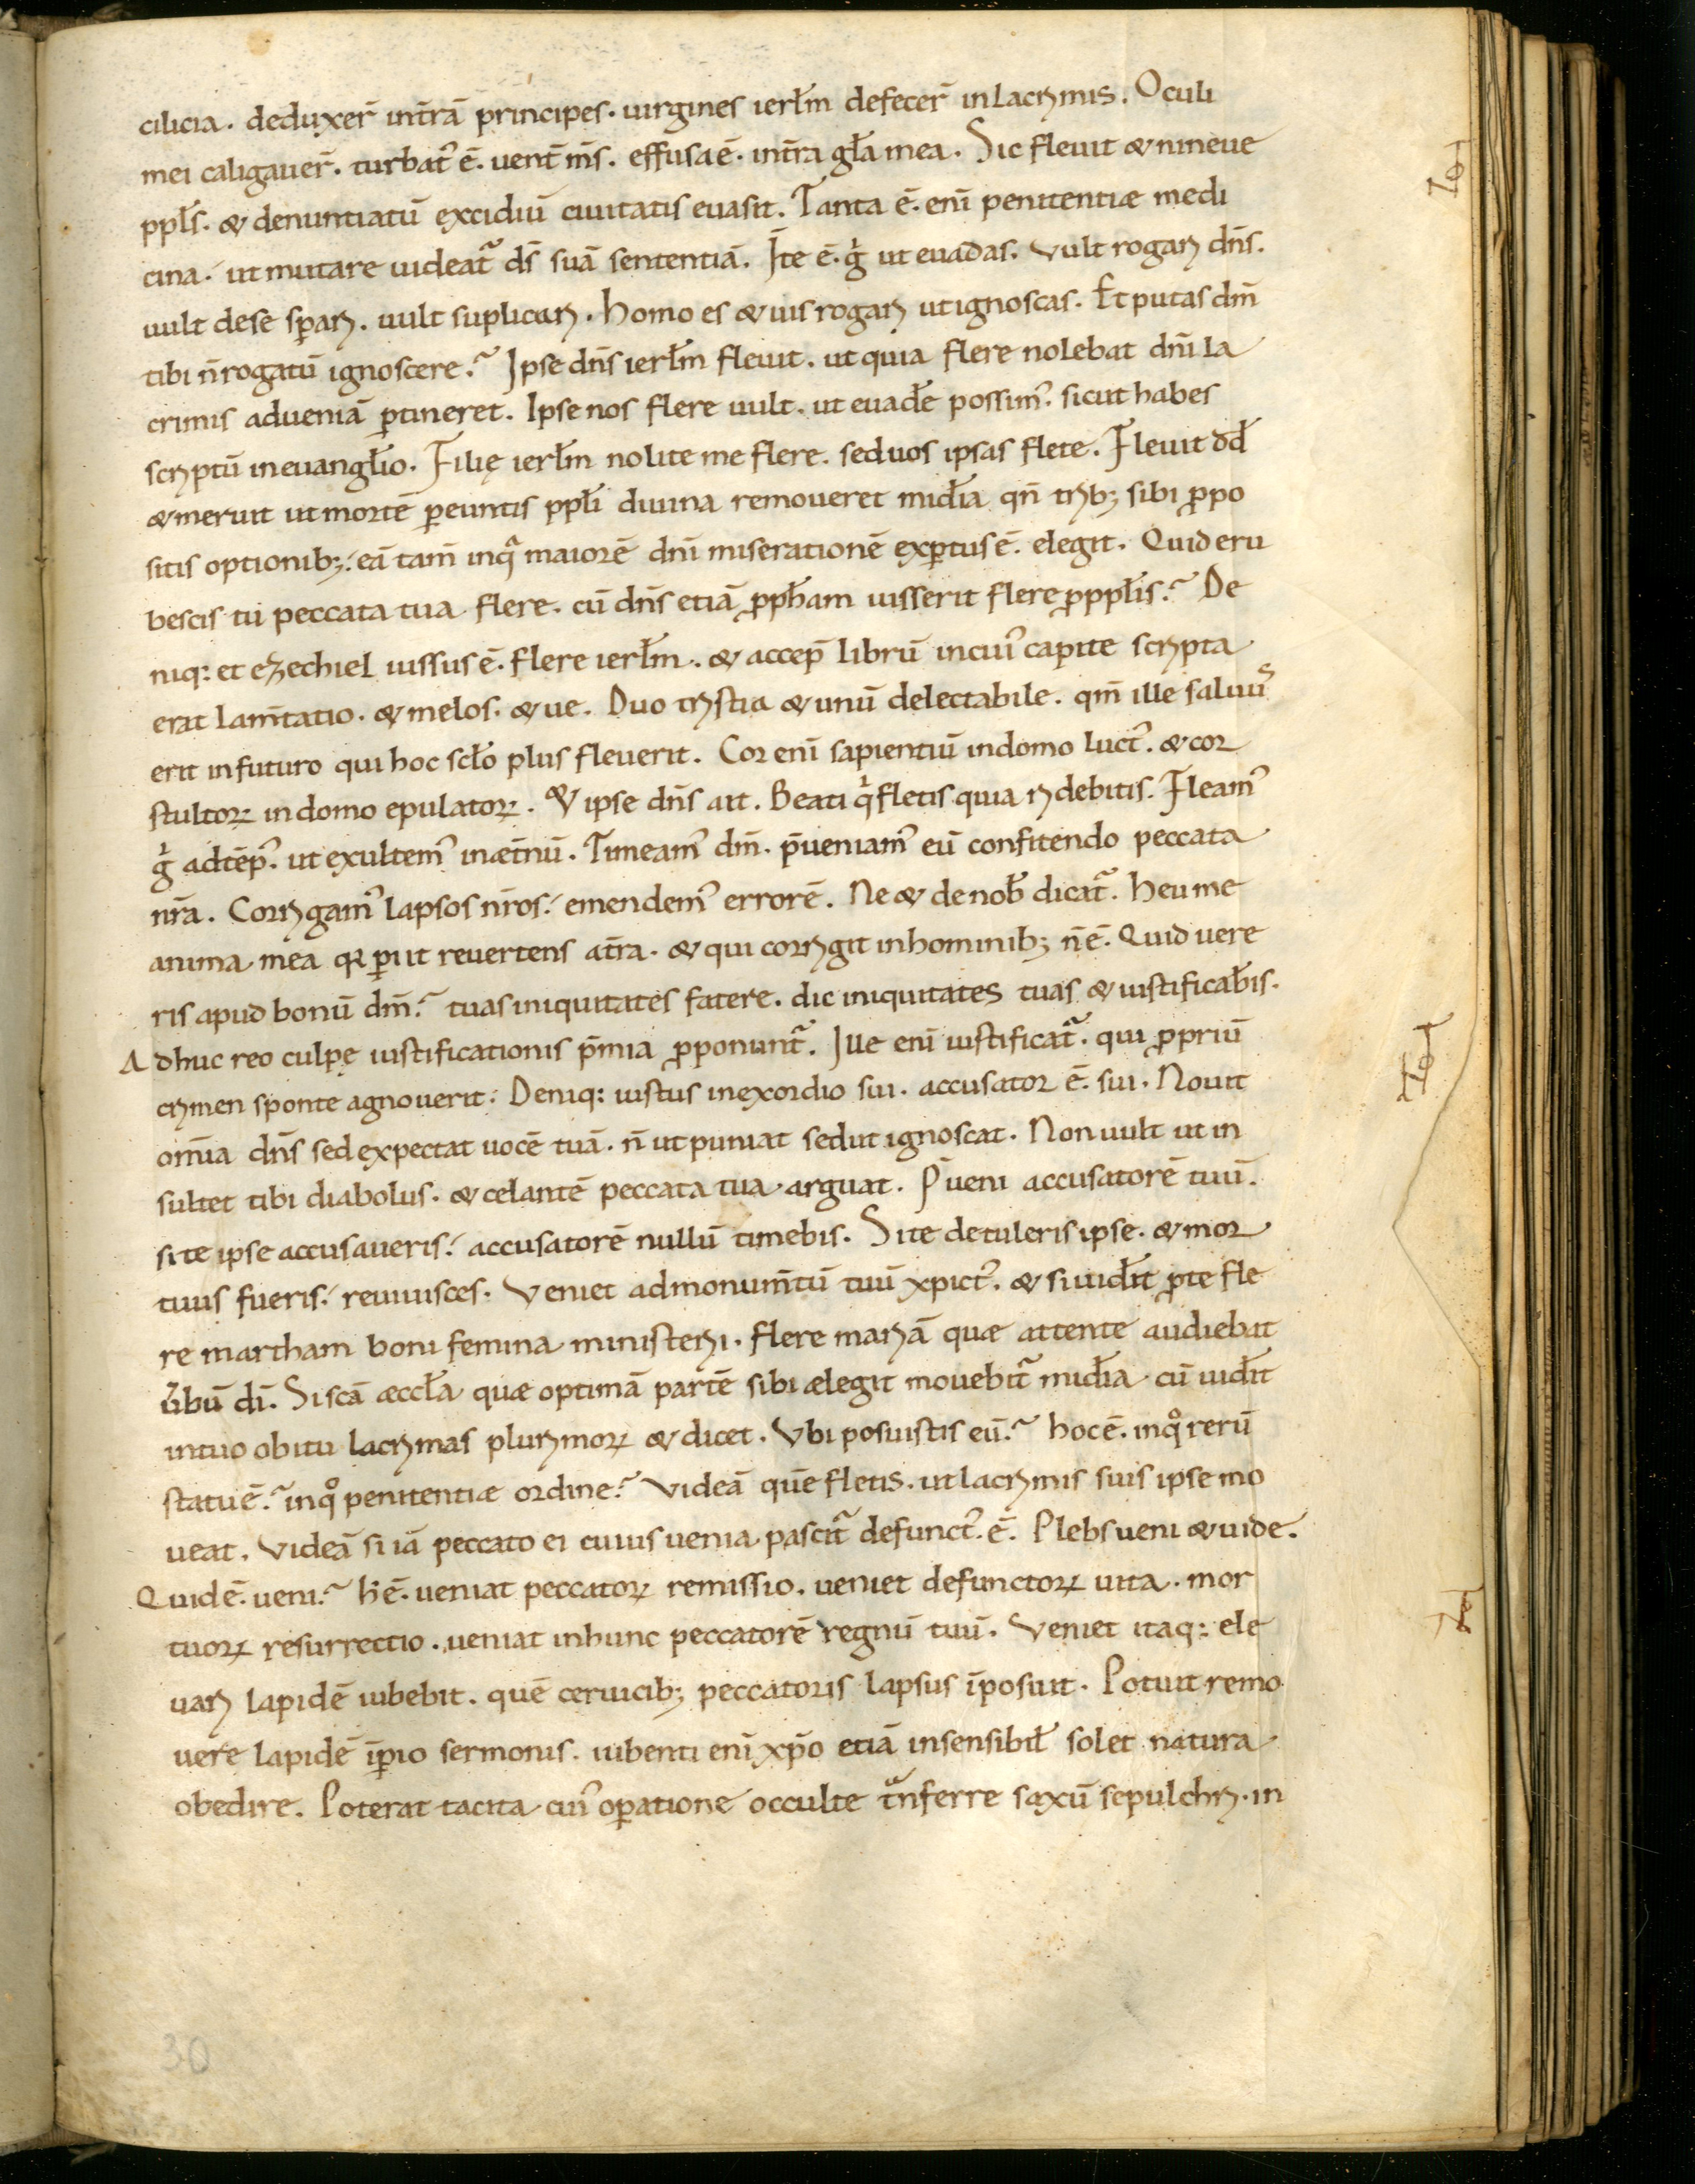 cilicia. deduxer̄ int̄rā principes. uirgines ierłm defecer̄ inlacrymis. Oculi
mei caligauer̄. turbat᾽ ē. uent̄ ms̄. effusa ē. int̄ra gła mea. Sic fleuit & nineue
ppłs. & denuntiatū excidiū ciuitatis euasit. Tanta ē. eni̅ penitentiæ medi
cina. ut mutare uideat᷑ ds̄ suā sententiā. In̄te ē. gͥ ut euadas. Vult rogari dn̄s.
uult dese sꝑari. uult suplicari. Homo es & uis rogari ut ignoscas. Et putas dm̄
tibi n̄ rogatū ignoscere? Ipse dn̄s ierłm fleuit. ut quia flere nolebat dn̄i la
crimis adueniā ꝑtineret. Ipse nos flere uult. ut euadɫe possim᾽. sicut habes
scriptū ineuangłio. Filię ierłm nolite me flere. sed uos ipsas flete. Fleuit dđ
& meruit ut mortē ꝑeuntis ppłi diuina remoueret mīđia qn̄ trib; sibi ꝓpo
sitis optionib; eā tam̄ inqᷓ maiorē dn̄i miserationē exꝑtus ē. elegit. Quid eru
bescis tu peccata tua flere. cū dn̄s etiā ꝓpħam iusserit flere ꝓ ppłis? De
niq: et ezechiel iussus ē. flere ierłm. & accep̄ librū incui᾽ capite scripta
erat lam̄tatio. & melos. & ue. Duo tristia & unū delectabile. qm̄ ille saluus
erit infuturo qui hoc scło plus fleuerit. Cor eni̅ sapientiū indomo luct᾽. & cor
stultoꝝ indomo epulatoꝝ. & ipse dn̄s ait. Beati qͥ fletis quia ridebitis. Fleam᾽
gͥ adtēp᾽. ut exultem᾽ inæt̄nū. Timeam᾽ dm̄. p̄ueniam᾽ eū confitendo peccata
nr̄a. Corrigam᾽ lapsos nr̄os. emendem᾽ errorē. Ne & de nob̄ dicat᷑. heu me
anima mea qꝛ ꝑiit reuertens at̄ra. & qui corrigit inhominib; n̄ ē. Quid uere
ris apud bonū dm̄? tuas iniquitates fatere. dic iniquitates tuas & iustificab̄is.
Adhuc reo culpę iustificationis p̄mia ꝓponunt᷑. Ille eni̅ iustificat᷑. qui ꝓpriū
crimen sponte agnouerit. Deniq: iustus inexordio sui. accusator ē. sui. Nouit
om̄ia dn̄s sed expectat uocē tuā. n̄ ut puniat sed ut ignoscat. Non uult ut in
sultet tibi diabolus. & celantē peccata tua arguat. P̄ueni accusatorē tuū.
si te ipse accusaueris. accusatorē nullū timebis. Si te detuleris ipse. & mor
tuus fueris. reuiuisces. Veniet admonum̄tū tuū xp̄ict᾽. & si uiđit ꝓ te fle
re martham boni femina ministerii. flere mariā quæ attente audiebat
ūbū di̅. Si scā æccła quæ optimā partē sibi ælegit mouebit᷑ miđia cū uiđit
intuo obitu lacrymas plurimoꝝ & dicet. Vbi posuistis eū? hoc ē. inqͦ rerū
statu ē? inqͦ penitentiæ ordine? Videā quē fletis. ut lacrymis suis ipse mo
ueat. Videā si iā peccato ei cuius uenia pascit᷑ defunct᾽. ē. Plebs ueni & uide.
Quid ē. ueni? h̄ ē. ueniat peccatoꝝ remissio. ueniet defunctoꝝ uita. mor
tuoꝝ resurrectio. ueniat inhunc peccatorē regnū tuū. Veniet itaq: ele
uari lapidē iubebit. quē ceruicib; peccatoris lapsus īposuit. Potuit remo
uere lapidē īꝑio sermonis. iubenti eni̅ xp̄o etiā insensibił solet natura
obedire. Poterat tacita cui᾽ oꝑatione occulte tᷓnferre saxū sepulchri. in
30